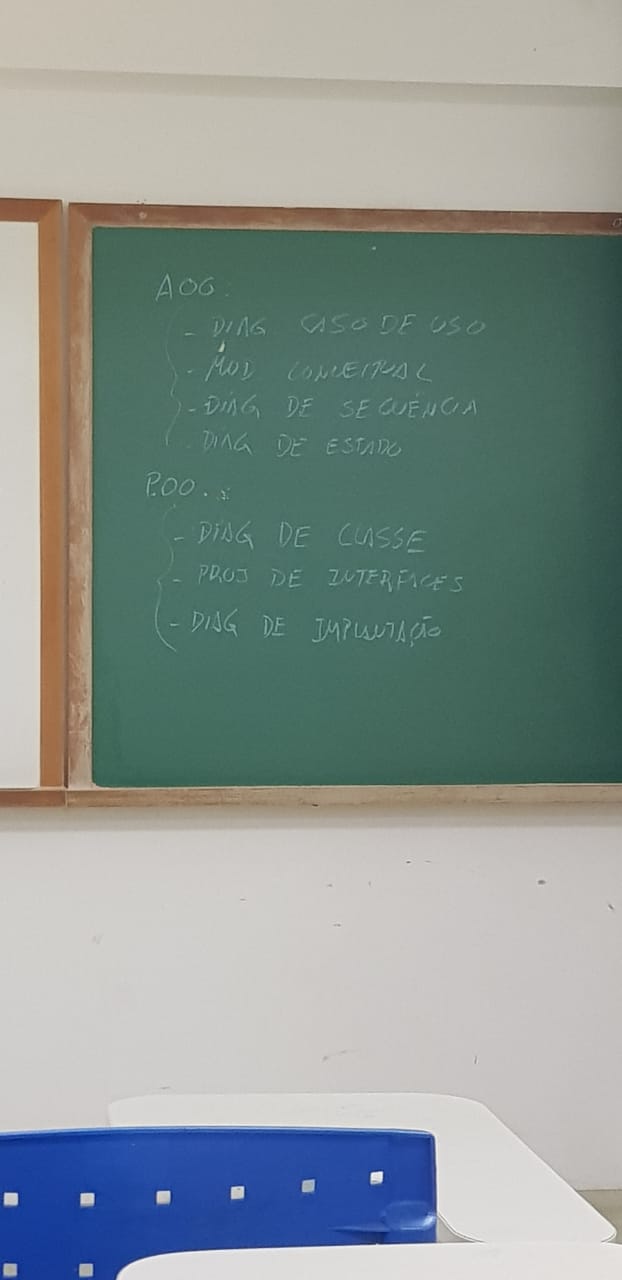 AOO:
- DIAG CASO DE USO
- MOD CONCEITUAL
- DIAG DE SEQUÊNCIA
- DIAG DE ESTADO
POO.:
- DIAG DE CLASSE
- PROJ DE INTERFACES
- DIAG DE IMPLANTAÇÃO